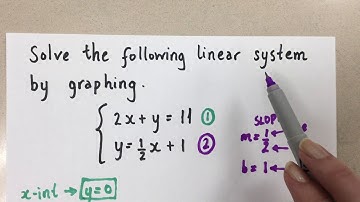 Solve the following linear system
by graphing.
2x + y = 11 ①
y = ½x + 1 ②
SLOP
m = 1/2
b = 1
x-int → y = 0